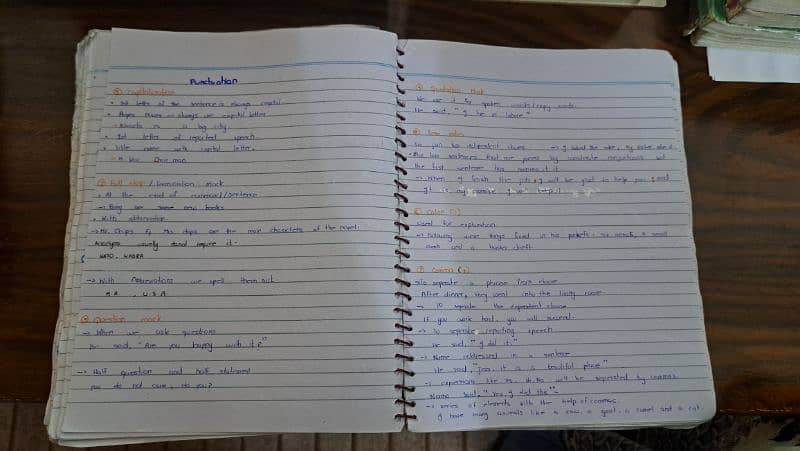 Punctuation
① Capitalization
• 1st letter of the sentence is always capital.
• Proper nouns always use capital letters
Karachi is a big city.
• 1st letter of reported speech
• Write name with capital letter.
② Full stop /
• At the end of sentence
→ Bring me some books
• With abbreviation
→ Mr. Chips & Mrs. chips are the main characters of the novel.
Acronyms usually donot require it.
NATO, WAPDA
→ With Abbreviations we spell them out
M.A , U.S.A
③ Question mark
→ When we ask questions
said, "Are you happy with it?"
→ Half question and half statement
You do not care, do you?
We use it for spoken words/copy words.
He said, "I live in lahore"
To join two independent clauses
• The two sentences that are joined by coordinate conjunctions but
the first sentence has comma in it
→ When I finish the job, I will be glad to help you ; and
Used for explanation
→ Following were things found in his pockets: a small
and a
⑦ Comma (,)
→ To separate a phrase from clause
After dinner, they went into the living room.
→ To separate the dependent clause
If you work hard, you will succeed.
→ To separate reporting speech
He said, "I did it."
→ Name addressed in a sentence
He said, "John, it is a beautiful place."
→ expressions like Yes, No, will be separated by commas
said, "Yes, I did this"
→ series of elements with the help of commas.
I have many animals like a cow, a goat, a camel and a cat.